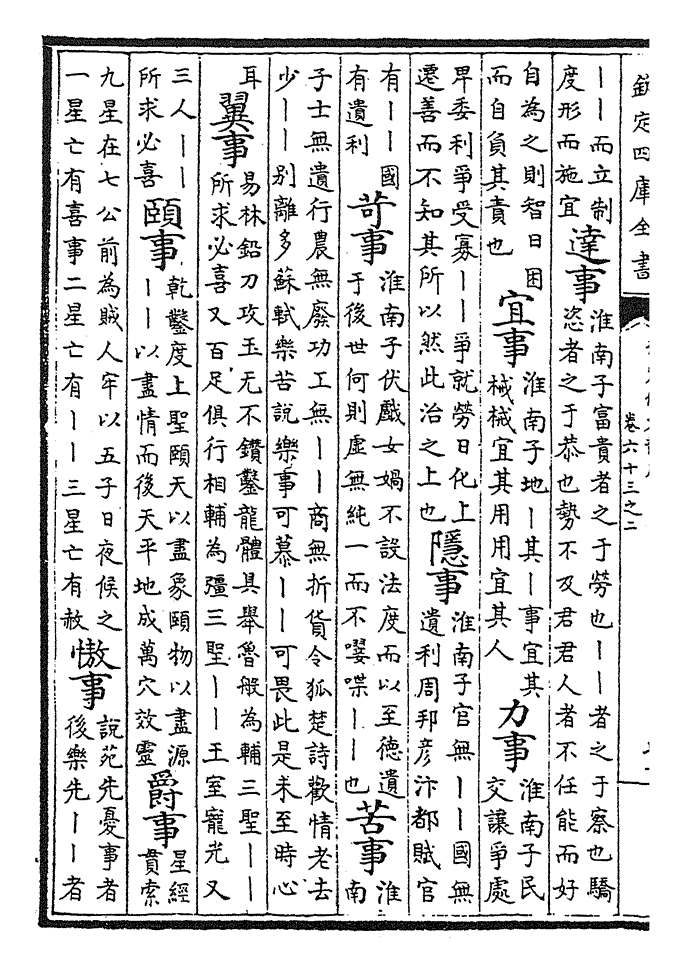 欽定四庫全書
卷六十三之二
丨丨而立制
度形而施宜
達事
淮南子富貴者之于勞也丨丨者之于察也驕
恣者之于恭也勢不及君君人者不任能而好
自為之則智日困
而自負其責也
宜事
淮南子地丨其丨事宜其
械械宜其用用宜其人
力事
淮南子民
交讓爭處
卑委利爭受寡丨丨爭就勞日化上
遷善而不知其所以然此治之上也
隱事
淮南子官無丨丨國無
遺利周邦彦汴都賦官
有丨丨國
有遺利
苛事
淮南子伏戲女媧不設法度而以至徳遺
于後世何則虚無純一而不嘤喋丨丨也
苦事
淮
南
子士無遺行農無廢功工無丨丨商無折貨令狐楚詩歡情老去
少丨丨别離多蘇軾樂苦說樂事可慕丨丨可畏此是未至時心
耳
翼事
易林鉛刀攻玉无不鑽鑿龍體具舉魯般為輔三聖丨丨
所求必喜又百足俱行相輔為彊三聖丨丨王室寵光又
三人丨丨
所求必喜
頤事
乾鑿度上聖頤天以盡象頤物以盡源
丨丨以盡情而後天平地成萬穴效靈
爵事
星經
貫索
九星在七公前為賊人牢以五子日夜候之
一星亡有喜事二星亡有丨丨三星亡有赦
傲事
說苑先憂事者
後樂先丨丨者